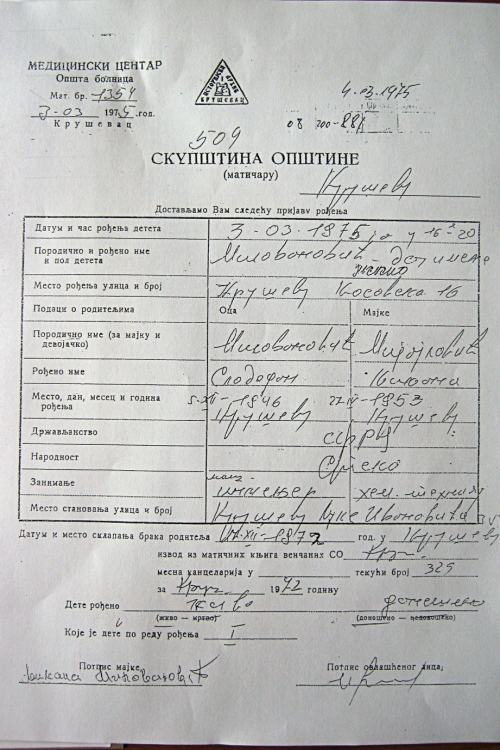 МЕДИЦИНСКИ ЦЕНТАР
Општа болница
Мат. бр. 1354
3-03 1975 .год.
Крушевац
ИСТОРИЈСКИ АРХИВ
КРУШЕВАЦ
4.03.1975
509
СКУПШТИНА ОПШТИНЕ
(матичару)
Крушевац
Достављамо Вам следећу пријаву рођења
Датум и час рођења детета 3-03-1975 у 16 20
Породично и рођено име и пол детета Миловановић - без имена
женско
Место рођења улица и број Крушевац Косовска 16
Подаци о родитељима Оца Мајке
Породично име (за мајку и девојачко) Миловановић Мијајловић
Рођено име Слободан
Место, дан, месец и година рођења 5-XII-1946 -1953
Крушевац Крушевац
Држављанство СФРЈ
Народност Српска
Занимање маш.
инжењер хем. техничар
Место становања улица и број Крушевац Луке Ивановића
Датум и место склапања брака родитеља -XII-1972 год. у Крушевцу
извод из матичних књига венчаних СО Круш.
месна канцеларија у текући број 325
за Круш. 1972 годину
Дете рођено живо доношено
(живо — мртво) (доношено — недоношено)
Које је дете по реду рођења I
Потпис мајке, Потпис овлашћеног лица,
Миловановић